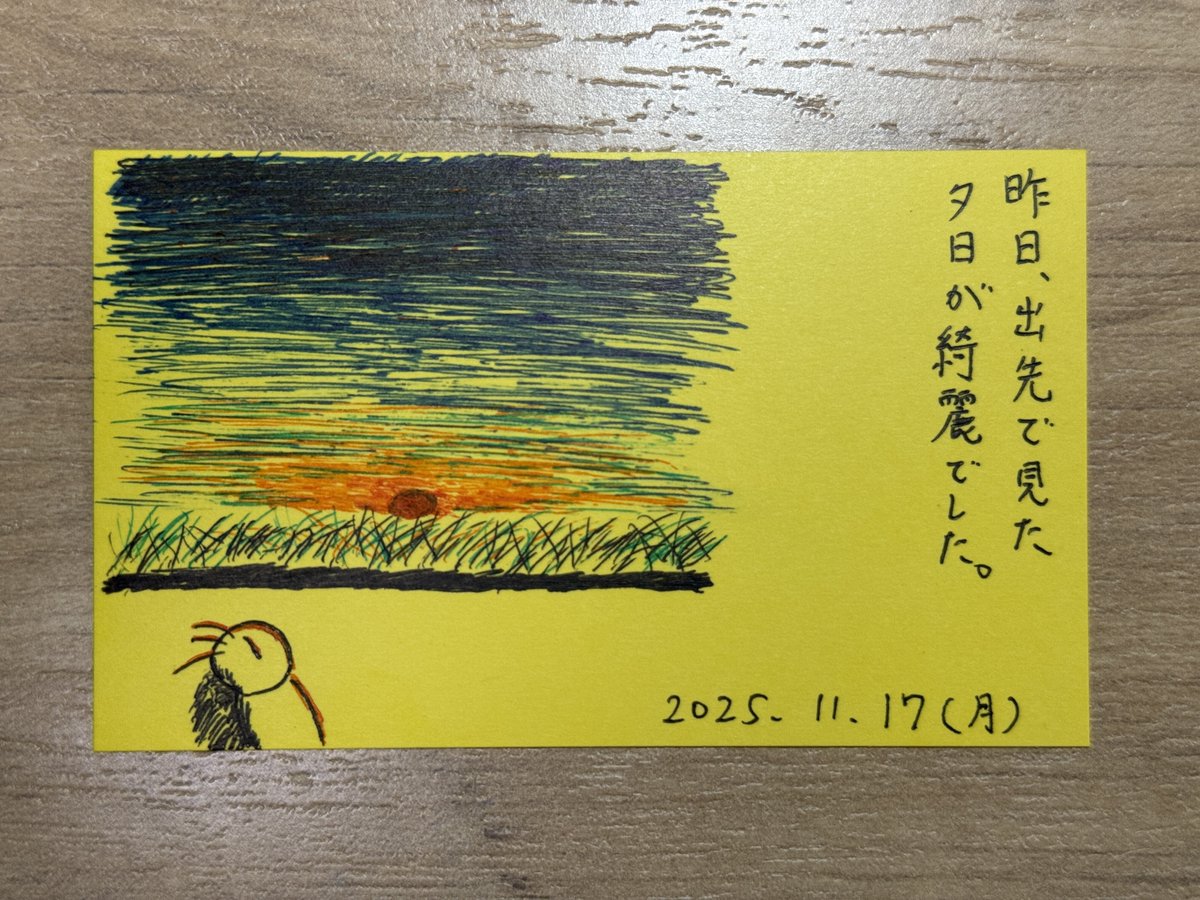 昨日、出先で見た、
夕日が綺麗でした。
2025.11.17(月)